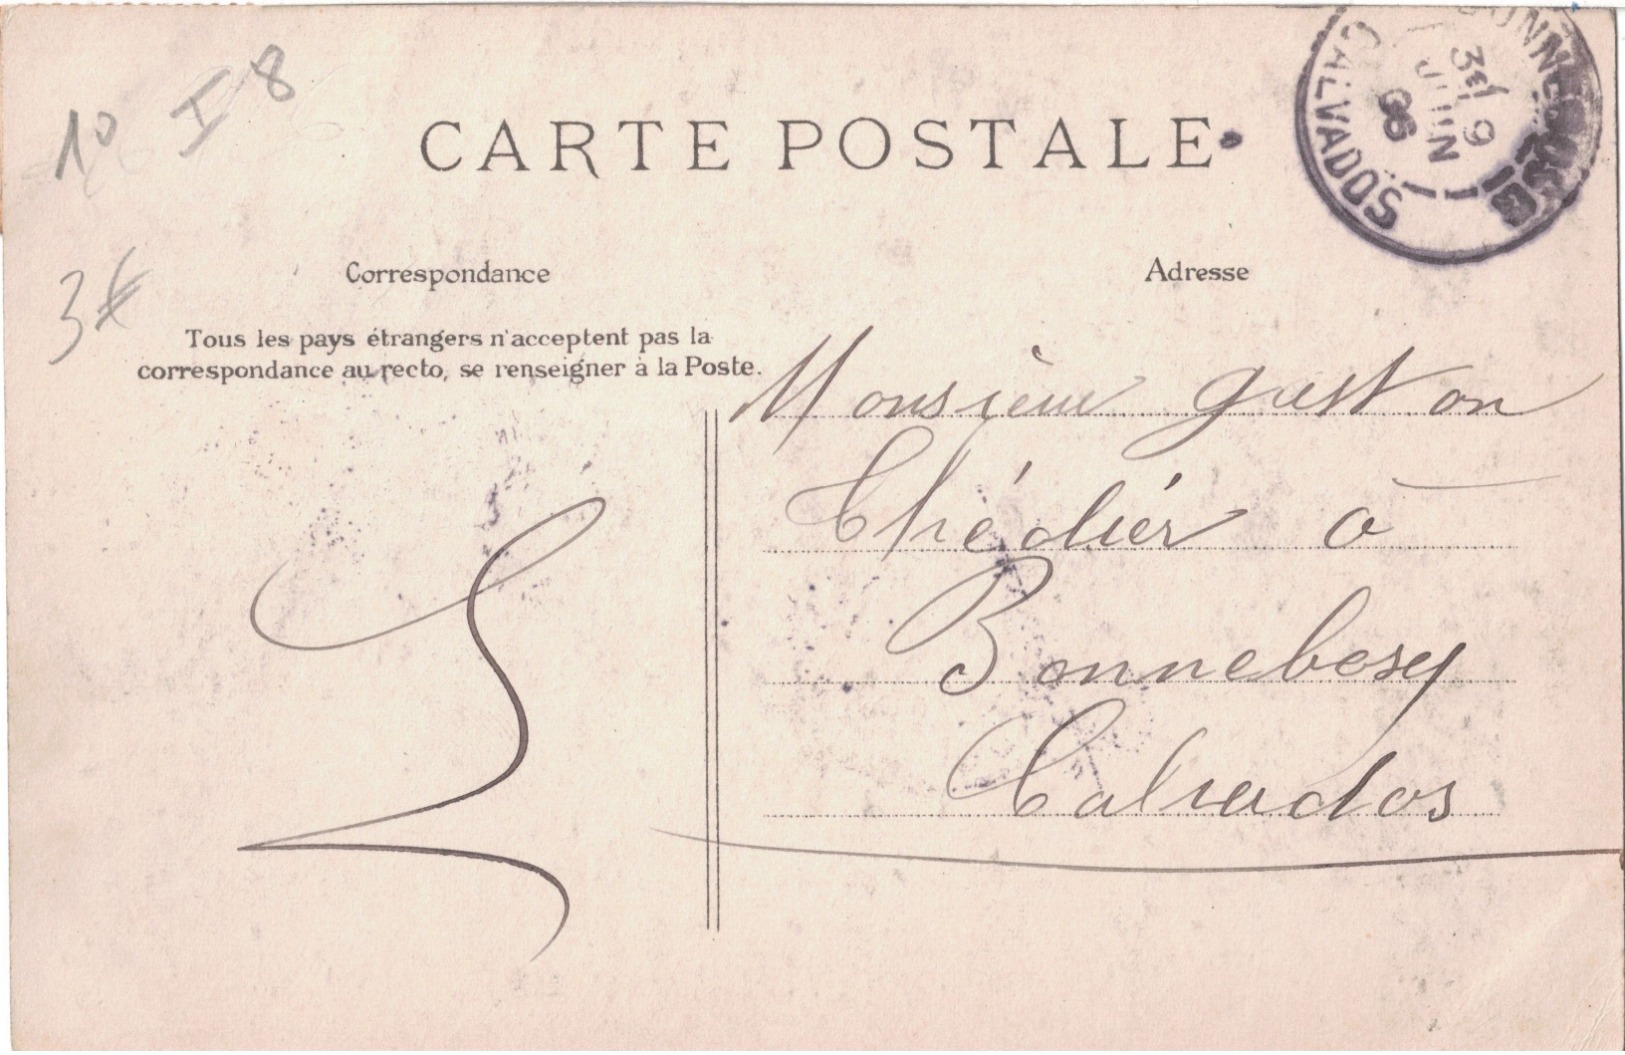 10 I 8
CARTE POSTALE
3€
Correspondance
Adresse
Tous les pays étrangers n'acceptent pas la
correspondance au recto, se renseigner à la Poste.
Monsieur gaston
Thédier à
Bonnebosq
Calvados
BONNEBOSQ
3E
9
JUIN
06
CALVADOS